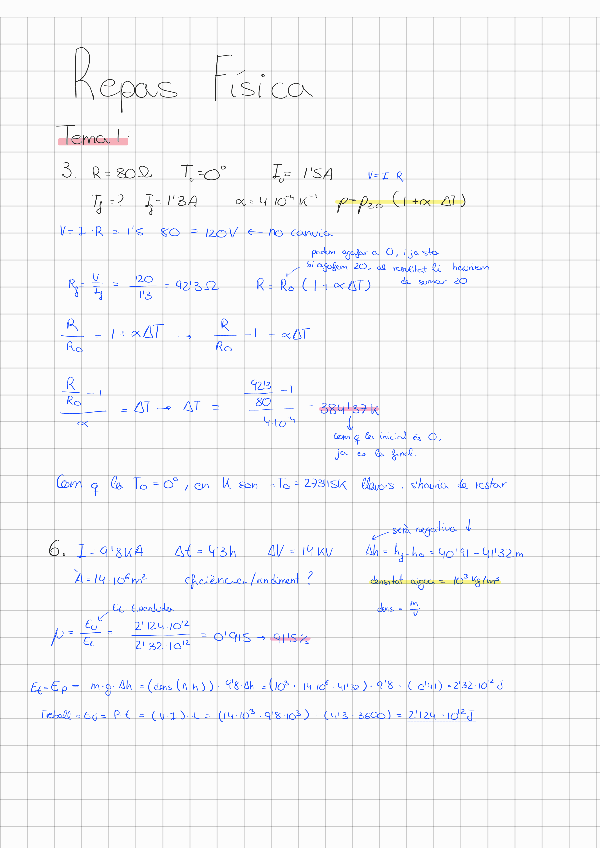 Repas Física
Tema 1.
3. R = 80Ω T₀ = 0° I₀ = 1'5A V = I · R
T_f = ? I_f = 1'3A α = 4·10⁻⁴ K⁻¹ ρ = ρ₂₀ (1 + α · ΔT)
V = I · R = 1'5 · 80 = 120V ← no canvia
podem agafar a 0, i ja sta
si agafem 20, al resultat li hauriem
de sumar 20
R_f = V/I_f = 120/1'3 = 92'3 Ω R = R₀ (1 + α ΔT)
R/R₀ = 1 + α ΔT → R/R₀ - 1 = α ΔT
(R/R₀ - 1)/α = ΔT → ΔT = (92'3/80 - 1)/4·10⁻⁴ = 384'37 K
com q la inicial és 0,
ja es la final.
Com q la T₀ = 0°, en K son T₀ = 273'15K llavors s'hauria de restar
6. I = 9'8KA Δt = 4'3h ΔV = 14 KV Δh = h_f - h₀ = 40'91 - 41'32m
serà negativa ↓
A = 14·10⁶m² eficiència/rendiment? densitat aigua = 10³ Kg/m³
dens = m/V
η = E_u/E_c = 2'124·10¹²/2'32·10¹² = 0'915 → 91'5%
E_c = E_p = m·g·Δh = (dens (A·h)) · 9'8 · Δh = (10³ · 14·10⁶ · 41'32) · 9'8 · (-0'41) = 2'32·10¹² J
Treball = E_u = P · t = (V·I) · t = (14·10³ · 9'8·10³) · (4'3 · 3600) = 2'124 · 10¹² J